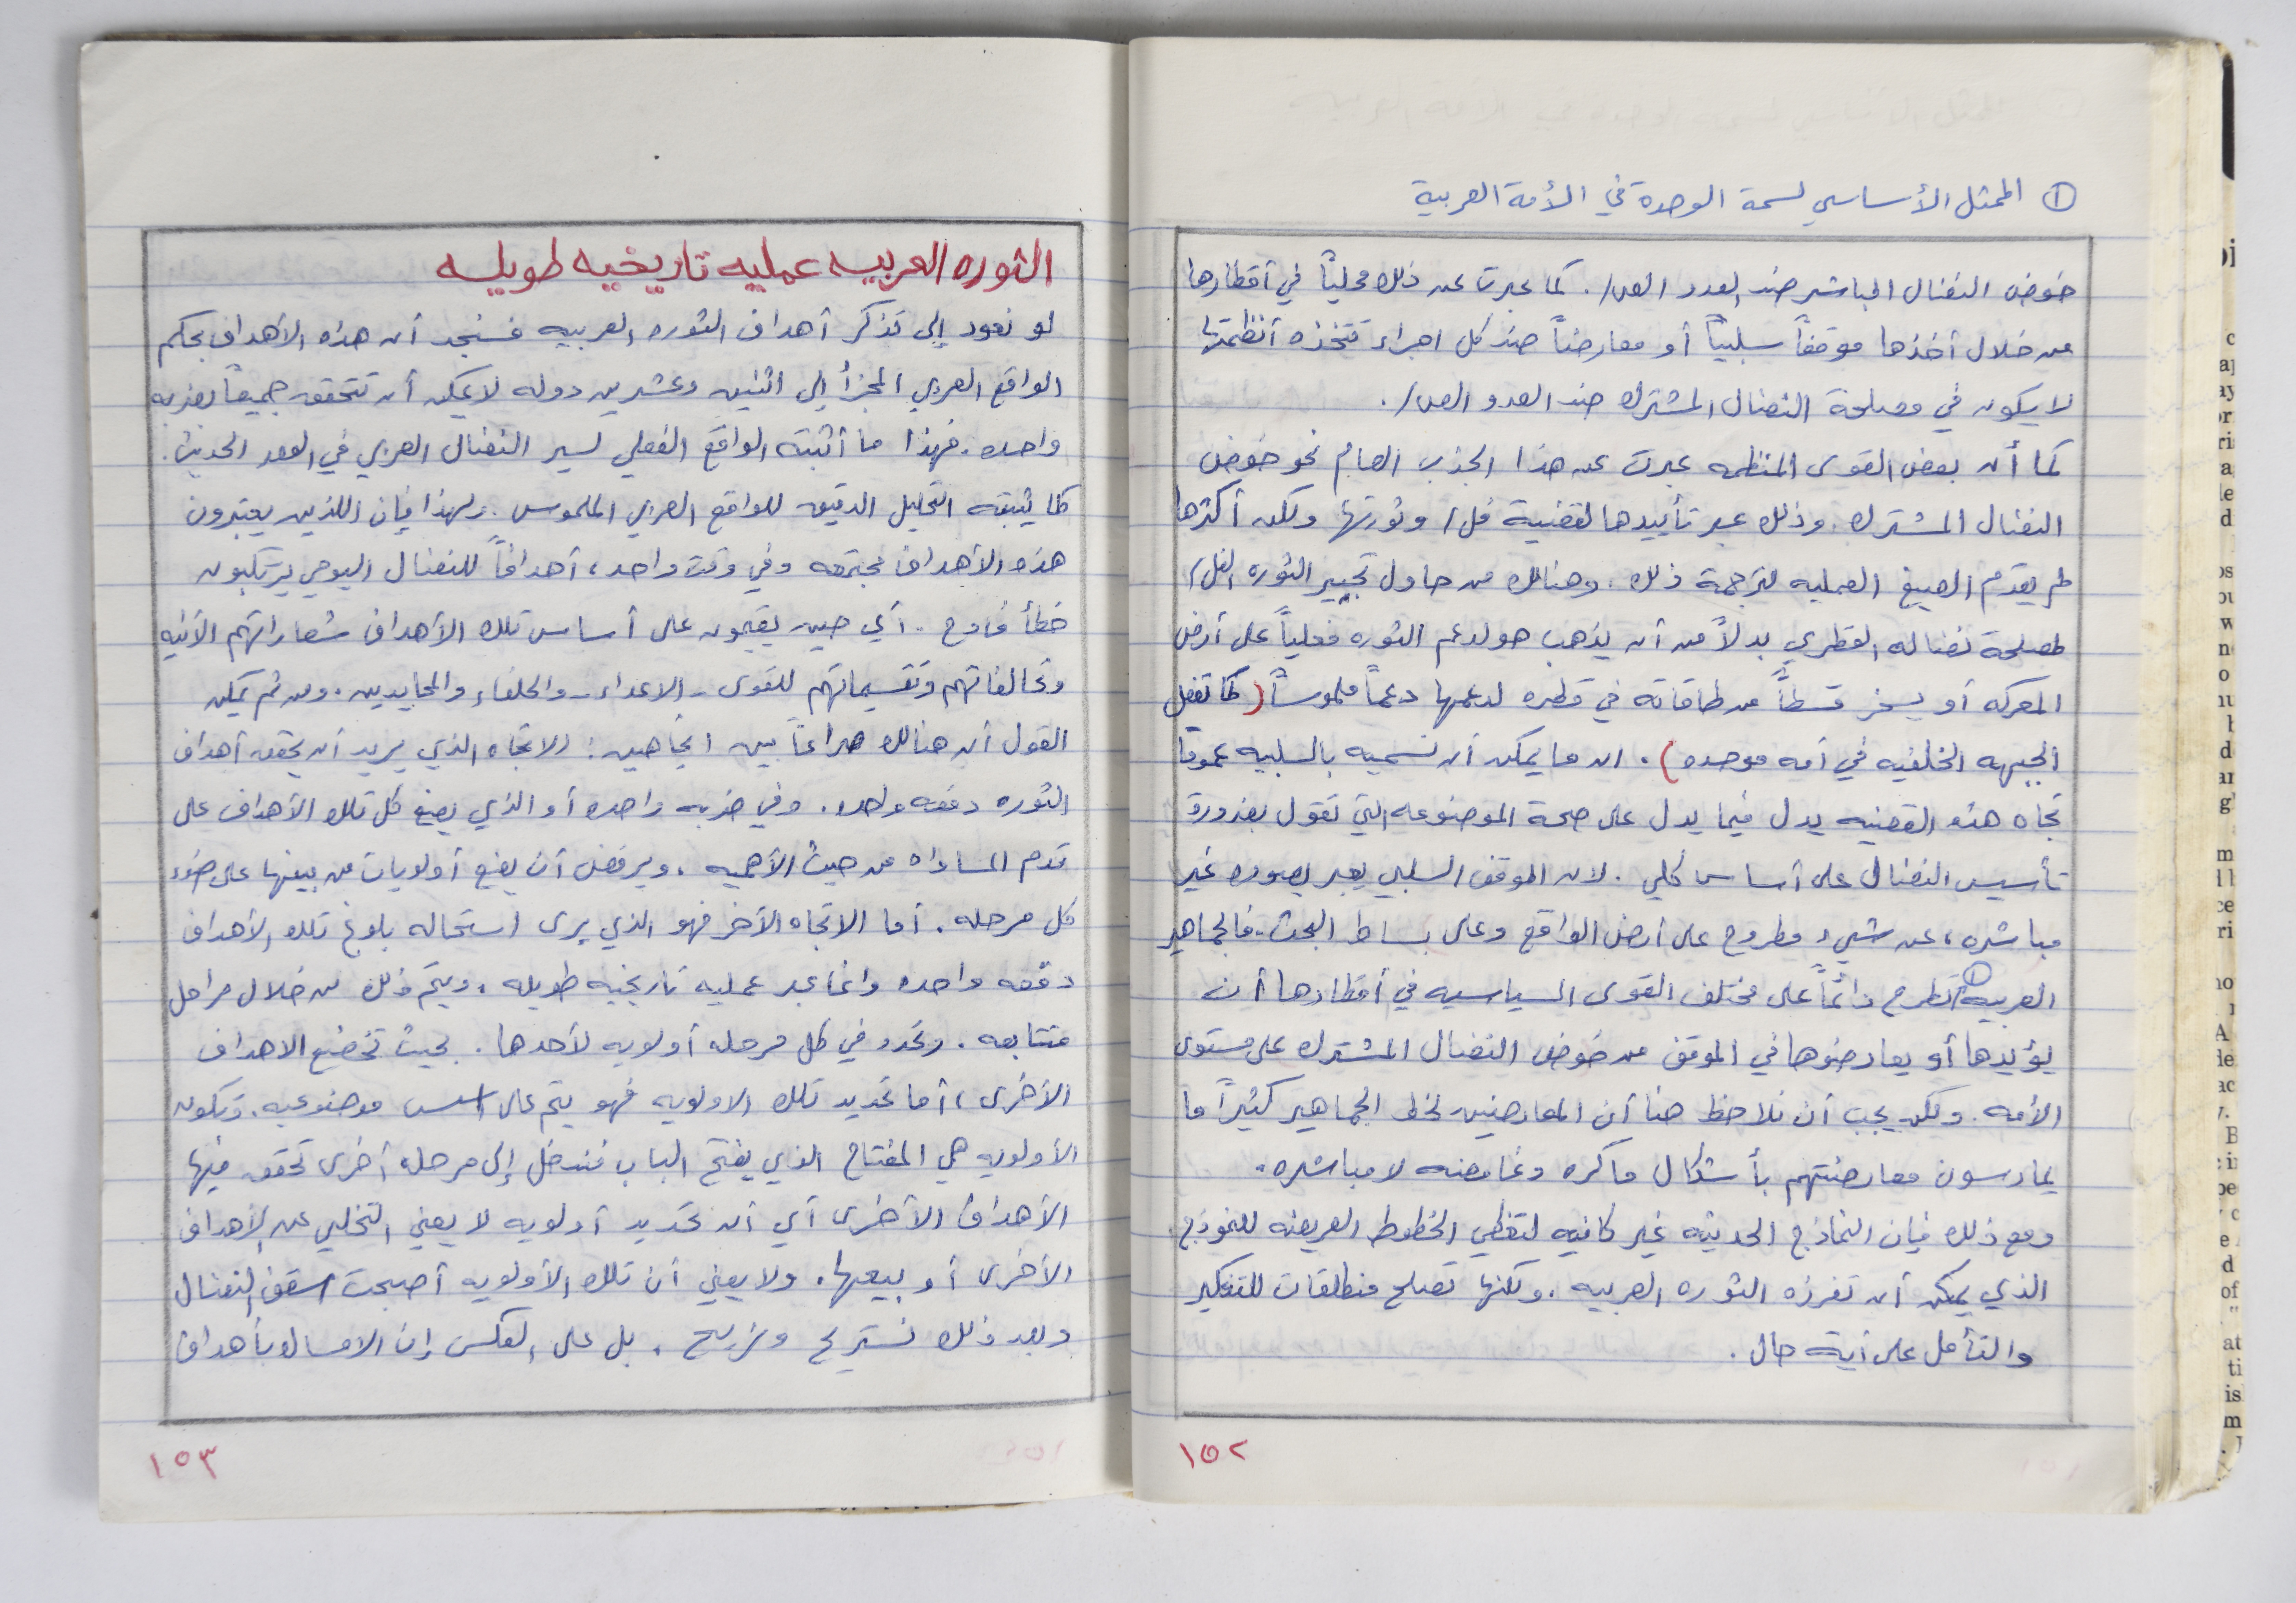 ① الممثل الأساسي لسمة الوحدة في الأمة العربية
خوض النضال المباشر ضد العدو الص/. كما عبرت عن ذلك محلياً في أقطارها
من خلال أخذها موقفاً سلبياً أو معارضاً ضد كل اجراء تتخذه أنظمتها
لا يكون في مصلحة النضال المشترك ضد العدو الص/.
كما أن بعض القوى المنظمه عبرت عن هذا الجذب العام نحو خوض
النضال المشترك. وذلك عبر تأييدها لقضية فل/ وثورتها ولكن أكثرها
لم يقدم الصيغ العمليه لترجمة ذلك. وهنالك من حاول تجيير الثوره الفل/
لمصلحة نضاله القطري بدلاً من أن يذهب هو لدعم الثوره فعلياً على أرض
المعركه أو يسخر قسطاً من طاقاته في قطره لدعمها دعماً ملموساً (كما تفعل
الجبهه الخلفيه في أمه موحده). ان ما يمكن أن نسميه بالسلبيه عموماً
تجاه هذه القضيه يدل فيما يدل على صحة الموضوعه التي تقول بضرورة
تأسيس النضال على أساس كلي. لان الموقف السلبي يعبر بصوره غير
مباشره، عن شيء مطروح على أرض الواقع وعلى بساط البحث. فالجماهير
العربيه① تطرح دائماً على مختلف القوى السياسيه في أقطارها أن
يؤيدها أو يعارضوها في الموقف من خوض النضال المشترك على مستوى
الأمه. ولكن يجب أن نلاحظ هنا أن المعارضين لخط الجماهير كثيراً ما
يمارسون معارضتهم بأشكال ماكره وغامضه لا مباشره.
ومع ذلك فإن النماذج الحديثه غير كافيه لتغطي الخطوط العريضه للنموذج
الذي يمكن أن تفرزه الثوره العربيه. ولكنها تصلح منطلقات للتفكير
والتأمل على أية حال.
١٥٢
الثوره العربيه عمليه تاريخيه طويله
لو نعود إلى تذكر أهداف الثوره العربيه فسنجد أن هذه الأهداف بحكم
الواقع العربي المجزأ إلى اثنين وعشرين دوله لا يمكن أن تتحقق جميعاً بضربه
واحده. فهذا ما أثبته الواقع الفعلي لسير النضال العربي في العهد الحديث.
كما يثبته التحليل الدقيق للواقع العربي الملموس. ولهذا فإن اللذين يعتبرون
هذه الأهداف مجتمعه وفي وقت واحد، أهدافاً للنضال اليومي يرتكبون
خطأ فادح. أي حين يقيمون على أساس تلك الأهداف شعاراتهم الآنيه
وتحالفاتهم وتقسيماتهم للقوى - الاعداء - والحلفاء والمحايدين. ومن ثم يمكن
القول أن هنالك صراعاً بين اتجاهين: الاتجاه الذي يريد أن يحقق أهداف
الثوره دفعه واحده. وفي ضربه واحده أو الذي يضع كل تلك الأهداف على
قدم المساواه من حيث الأهميه، ويرفض أن يضع أولويات من بينها على ضوء
كل مرحله. أما الاتجاه الآخر فهو الذي يرى استحاله بلوغ تلك الأهداف
دفعه واحده وانما عبر عمليه تاريخيه طويله، ويتم ذلك من خلال مراحل
متتابعه. وتحدد في كل مرحله أولويه لأحدها. بحيث تخضع الاهداف
الأخرى، أما تحديد تلك الاولويه فهو يتم على اسس موضوعيه. وتكون
الأولويه هي المفتاح الذي يفتح الباب فندخل إلى مرحله أخرى تحقق فيها
الأهداف الأخرى أي أن تحديد أولويه لا يعني التخلي عن الأهداف
الأخرى أو بيعها. ولا يعني أن تلك الأولويه أصبحت سقف النضال
وبعد ذلك نستريح ونريح. بل على العكس إن الامساك بأهداف
١٥٣